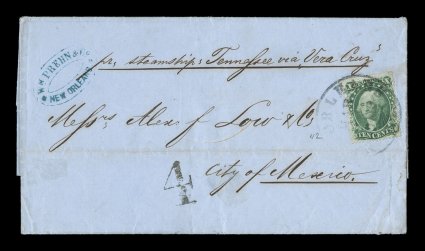 Wm PREHN & Co
NEW ORLEANS
pr. steamship: Tennessee via "Vera Cruz"
Messrs Alex f Low & Co
42
TEN CENTS
4
City of Mexico.